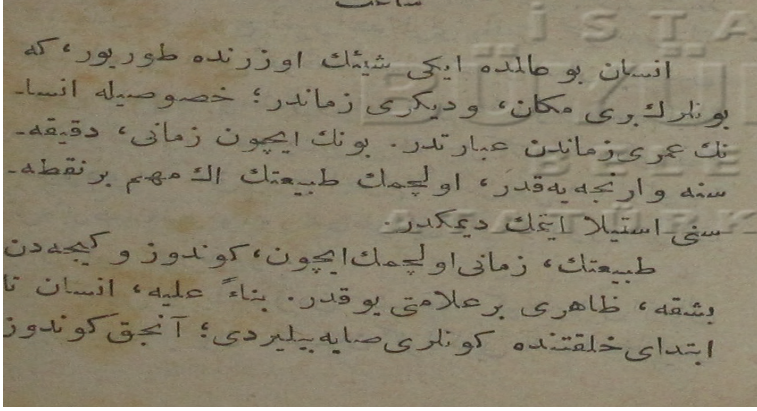 انسان بو عالمده ایکی شیئك اوزرنده طوریور، که
بونلرك بری مكان، ودیکری زماندر؛ خصوصیله انسا-
نك عمری زماندن عبارتدر. بونك ایچون زمانی، دقیقه-
سنه وارنجه یه قدر، اولچمك طبیعتك اك مهم بر نقطه-
سنی استیلا ایتمك دیمكدر.
طبیعتك، زمانی اولچمك ایچون، کوندوز و کیجه دن
بشقه، ظاهری بر علامتی یوقدر. بناءً علیه، انسان تا
ابتدای خلقتنده کونلری صایه بیلیردی؛ آنجق کوندوز
İSTA
BÜYÜK
BELE
ATATÜRK